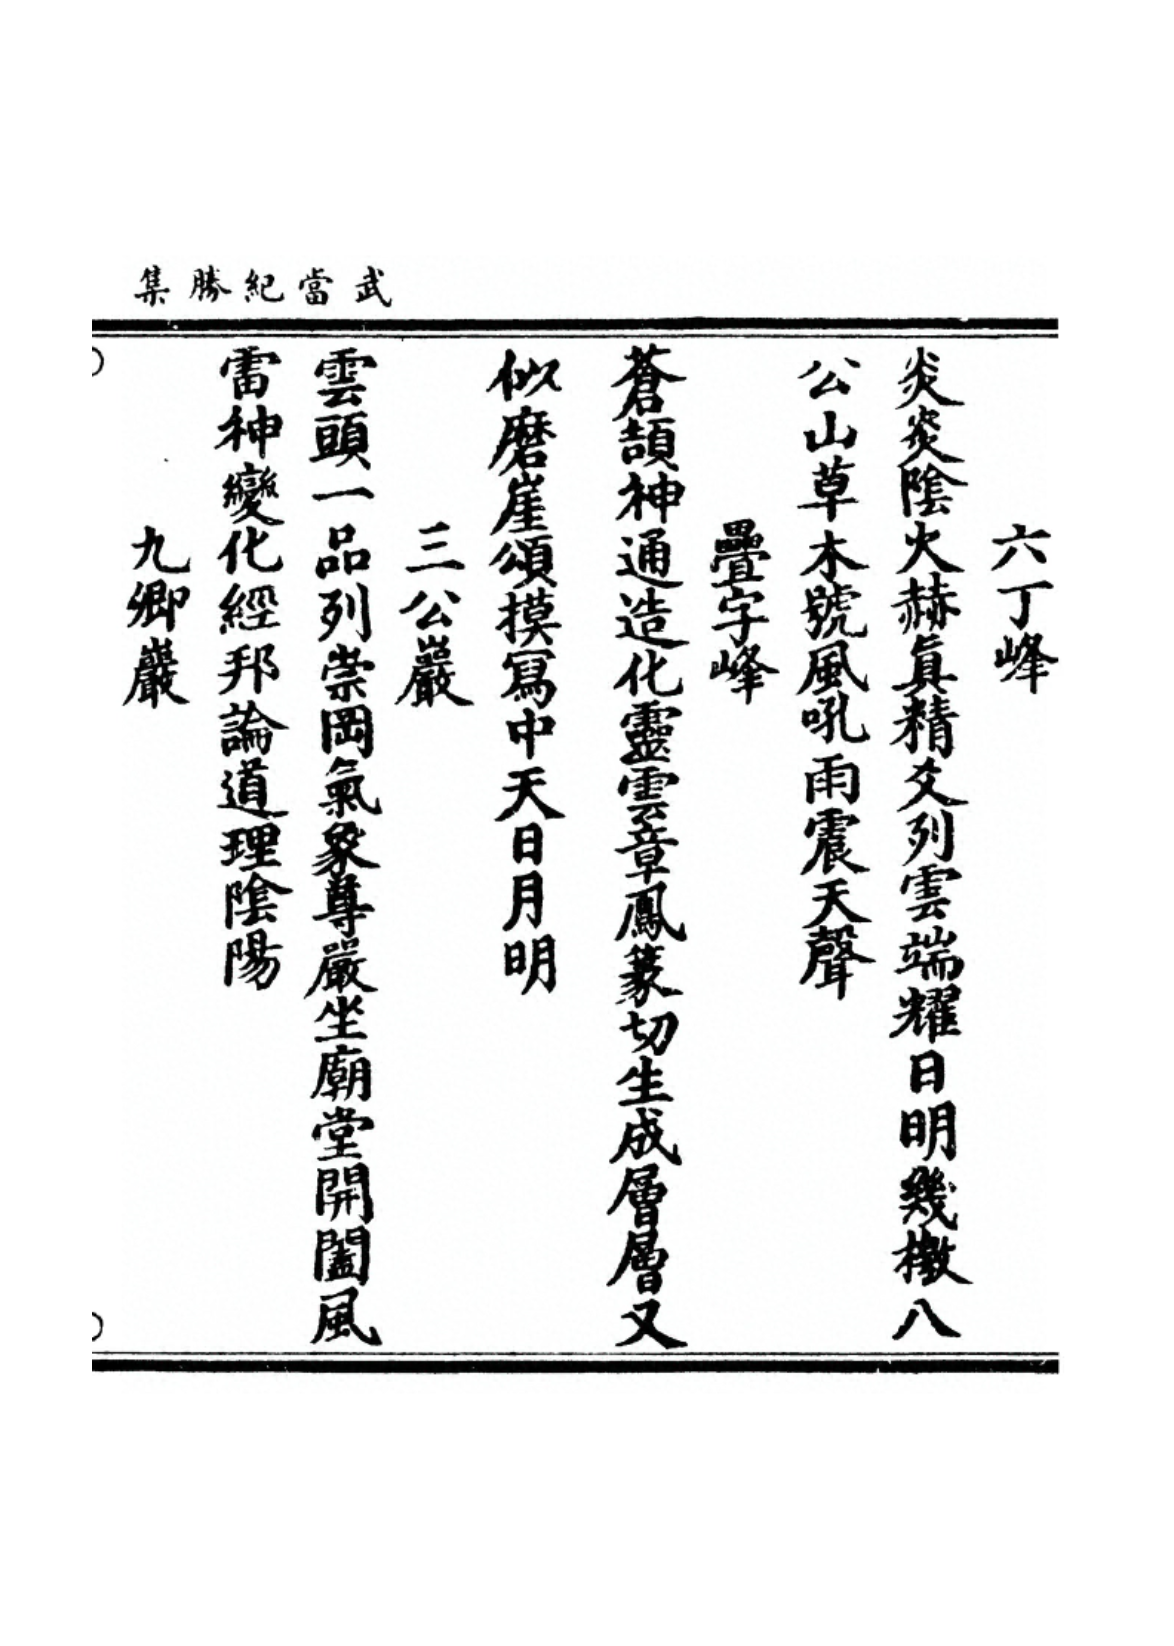 武當紀勝集
六丁峰
炎炎陰火赫眞精爻列雲端耀日明幾檄八
公山草木號風吼雨震天聲
疊字峰
蒼頡神通造化靈雲章鳳篆切生成層層又
似磨崖頌摸寫中天日月明
三公巖
雲頭一品列崇岡氣象尊嚴坐廟堂開闔風
雷神變化經邦論道理陰陽
九卿巖